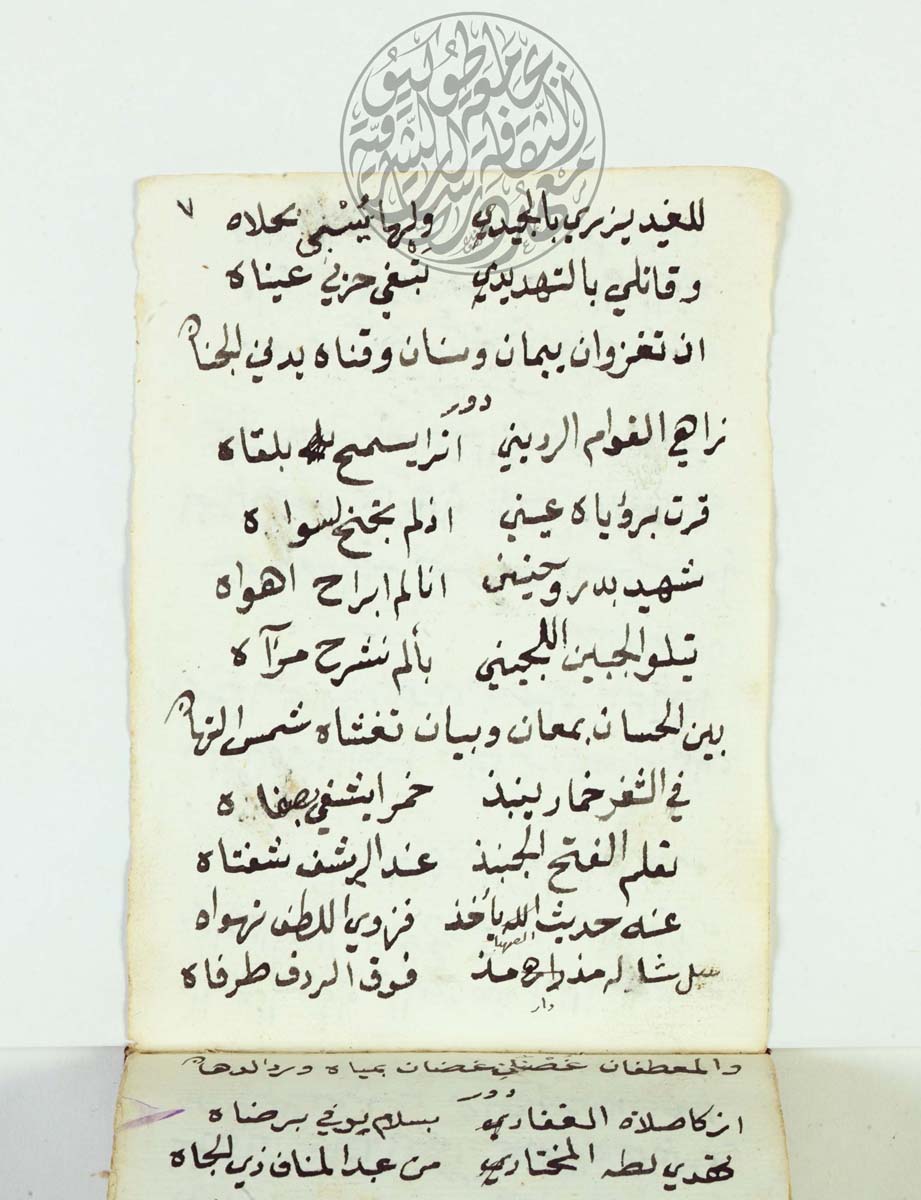 ٧
للغيد يزري بالجيدي ولها يسبي بحلاه
وقاتلي بالتهديدي تبغي حربي عيناه
ان تغزوان بيمان وسنان وقناه يدني الجنا
دور
زاهي القوام الرديني اترا يسمح بلقاه
قرت برؤياه عيني اذ لم تجنح لسواه
شهيد بدر وحنين انا لم ابراح اهواه
تيلو الجبين اللجيني بألم نشرح مرآه
بين الحسان بمعان وبيان تغشاه شمس النها
في الثغر خمار ينبذ خمرا يشفي بصفاه
تعلم الفتح الجنبذ عند الرشف شفتاه
عنه حديث الله يأخذ فزوي اللطف نهواه
الصهبا
شا له مذ مذ فوق الردف طرفاه
دار
والمعطفان غصنان بمياه ورد الدها
دور
ازكا صلاة الغفاري بسلام يوفي برضاه
تهدي لطه المختاري من عبد المناف ذي الجاه